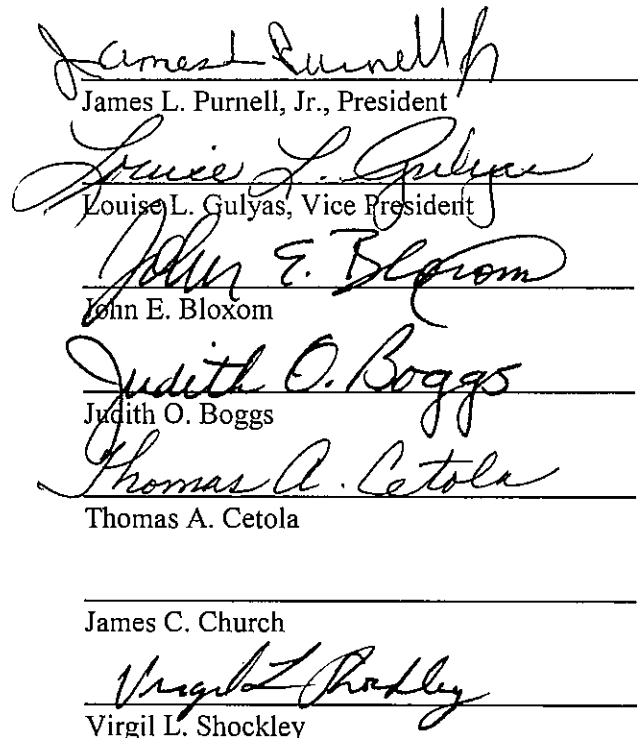 James L Purnell Jr
James L. Purnell, Jr., President
Louise L. Gulyas
Louise L. Gulyas, Vice President
John E. Bloxom
John E. Bloxom
Judith O. Boggs
Judith O. Boggs
Thomas A. Cetola
Thomas A. Cetola
James C. Church
Virgil L Shockley
Virgil L. Shockley